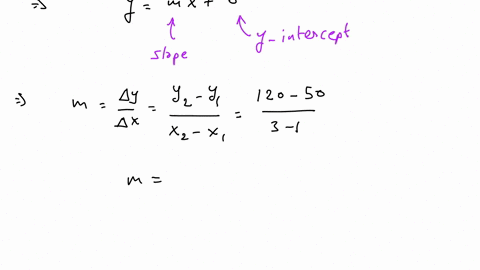 ⇒ y = mx +
slope
y-intercept
⇒ m = Δy/Δx = (y₂ - y₁)/(x₂ - x₁) = (120 - 50)/(3 - 1)
m =